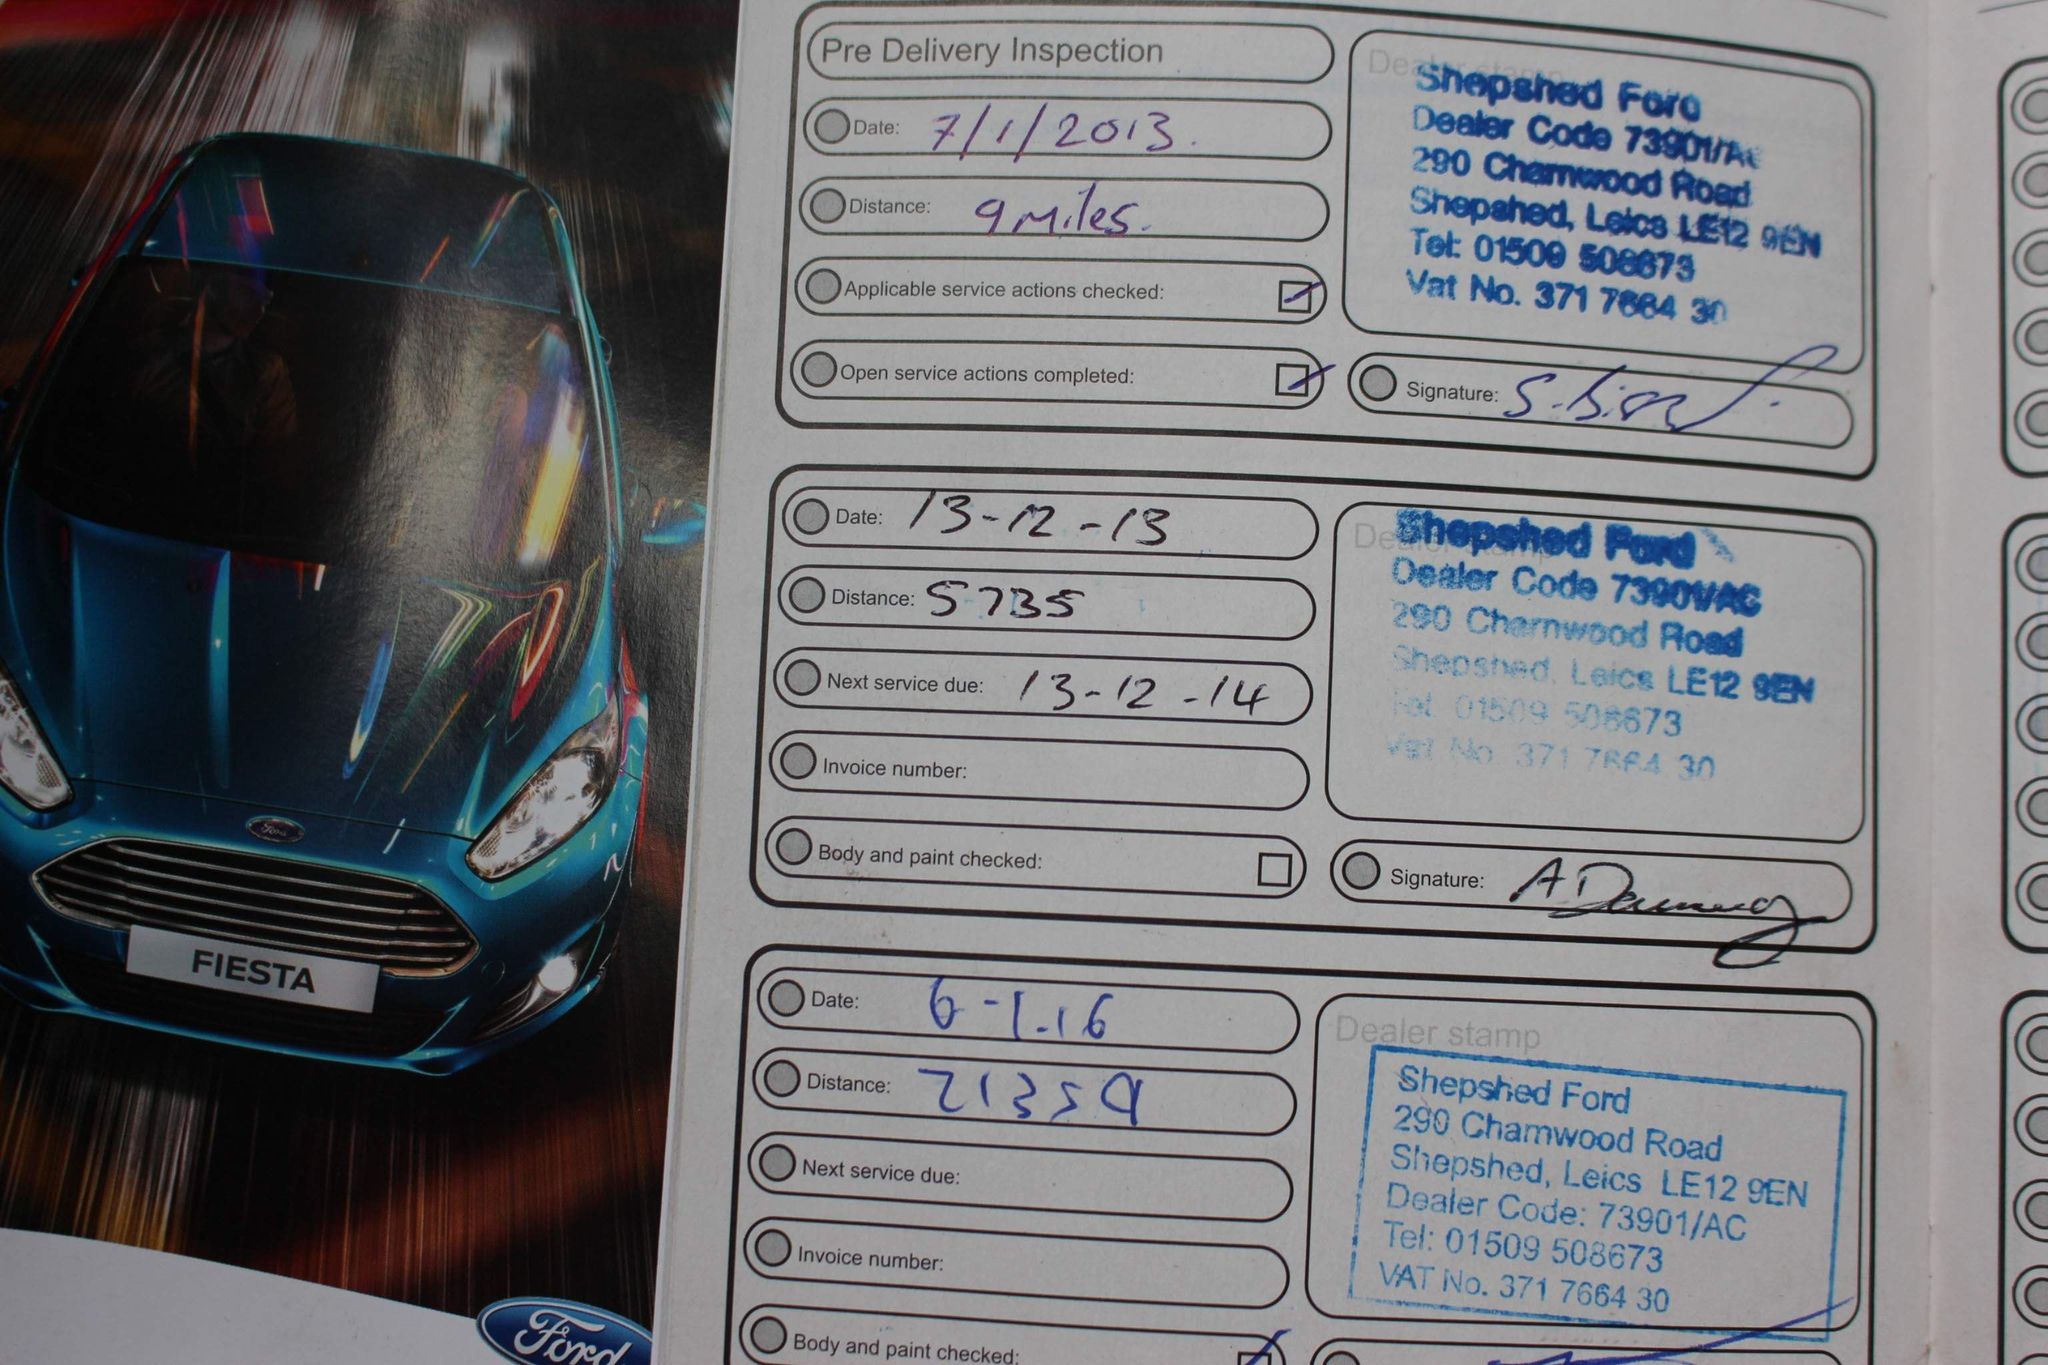 Pre Delivery Inspection
Date: 7/1/2013.
Distance: 9 Miles.
Applicable service actions checked:
Open service actions completed:
Dealer stamp
Shepshed Ford
Dealer Code 73901/AC
290 Charnwood Road
Shepshed, Leics LE12 9EN
Tel: 01509 508673
Vat No. 371 7664 30
Signature:
Date: 13-12-13
Distance: 5735
Next service due: 13-12-14
Invoice number:
Body and paint checked:
Dealer stamp
Shepshed Ford
Dealer Code 73901/AC
290 Charnwood Road
Shepshed, Leics LE12 9EN
Tel: 01509 508673
Vat No. 371 7664 30
Signature:
Date: 6-1.16
Distance: 21359
Next service due:
Invoice number:
Body and paint checked:
Dealer stamp
Shepshed Ford
290 Charnwood Road
Shepshed, Leics LE12 9EN
Dealer Code: 73901/AC
Tel: 01509 508673
VAT No. 371 7664 30
Ford
FIESTA
Ford